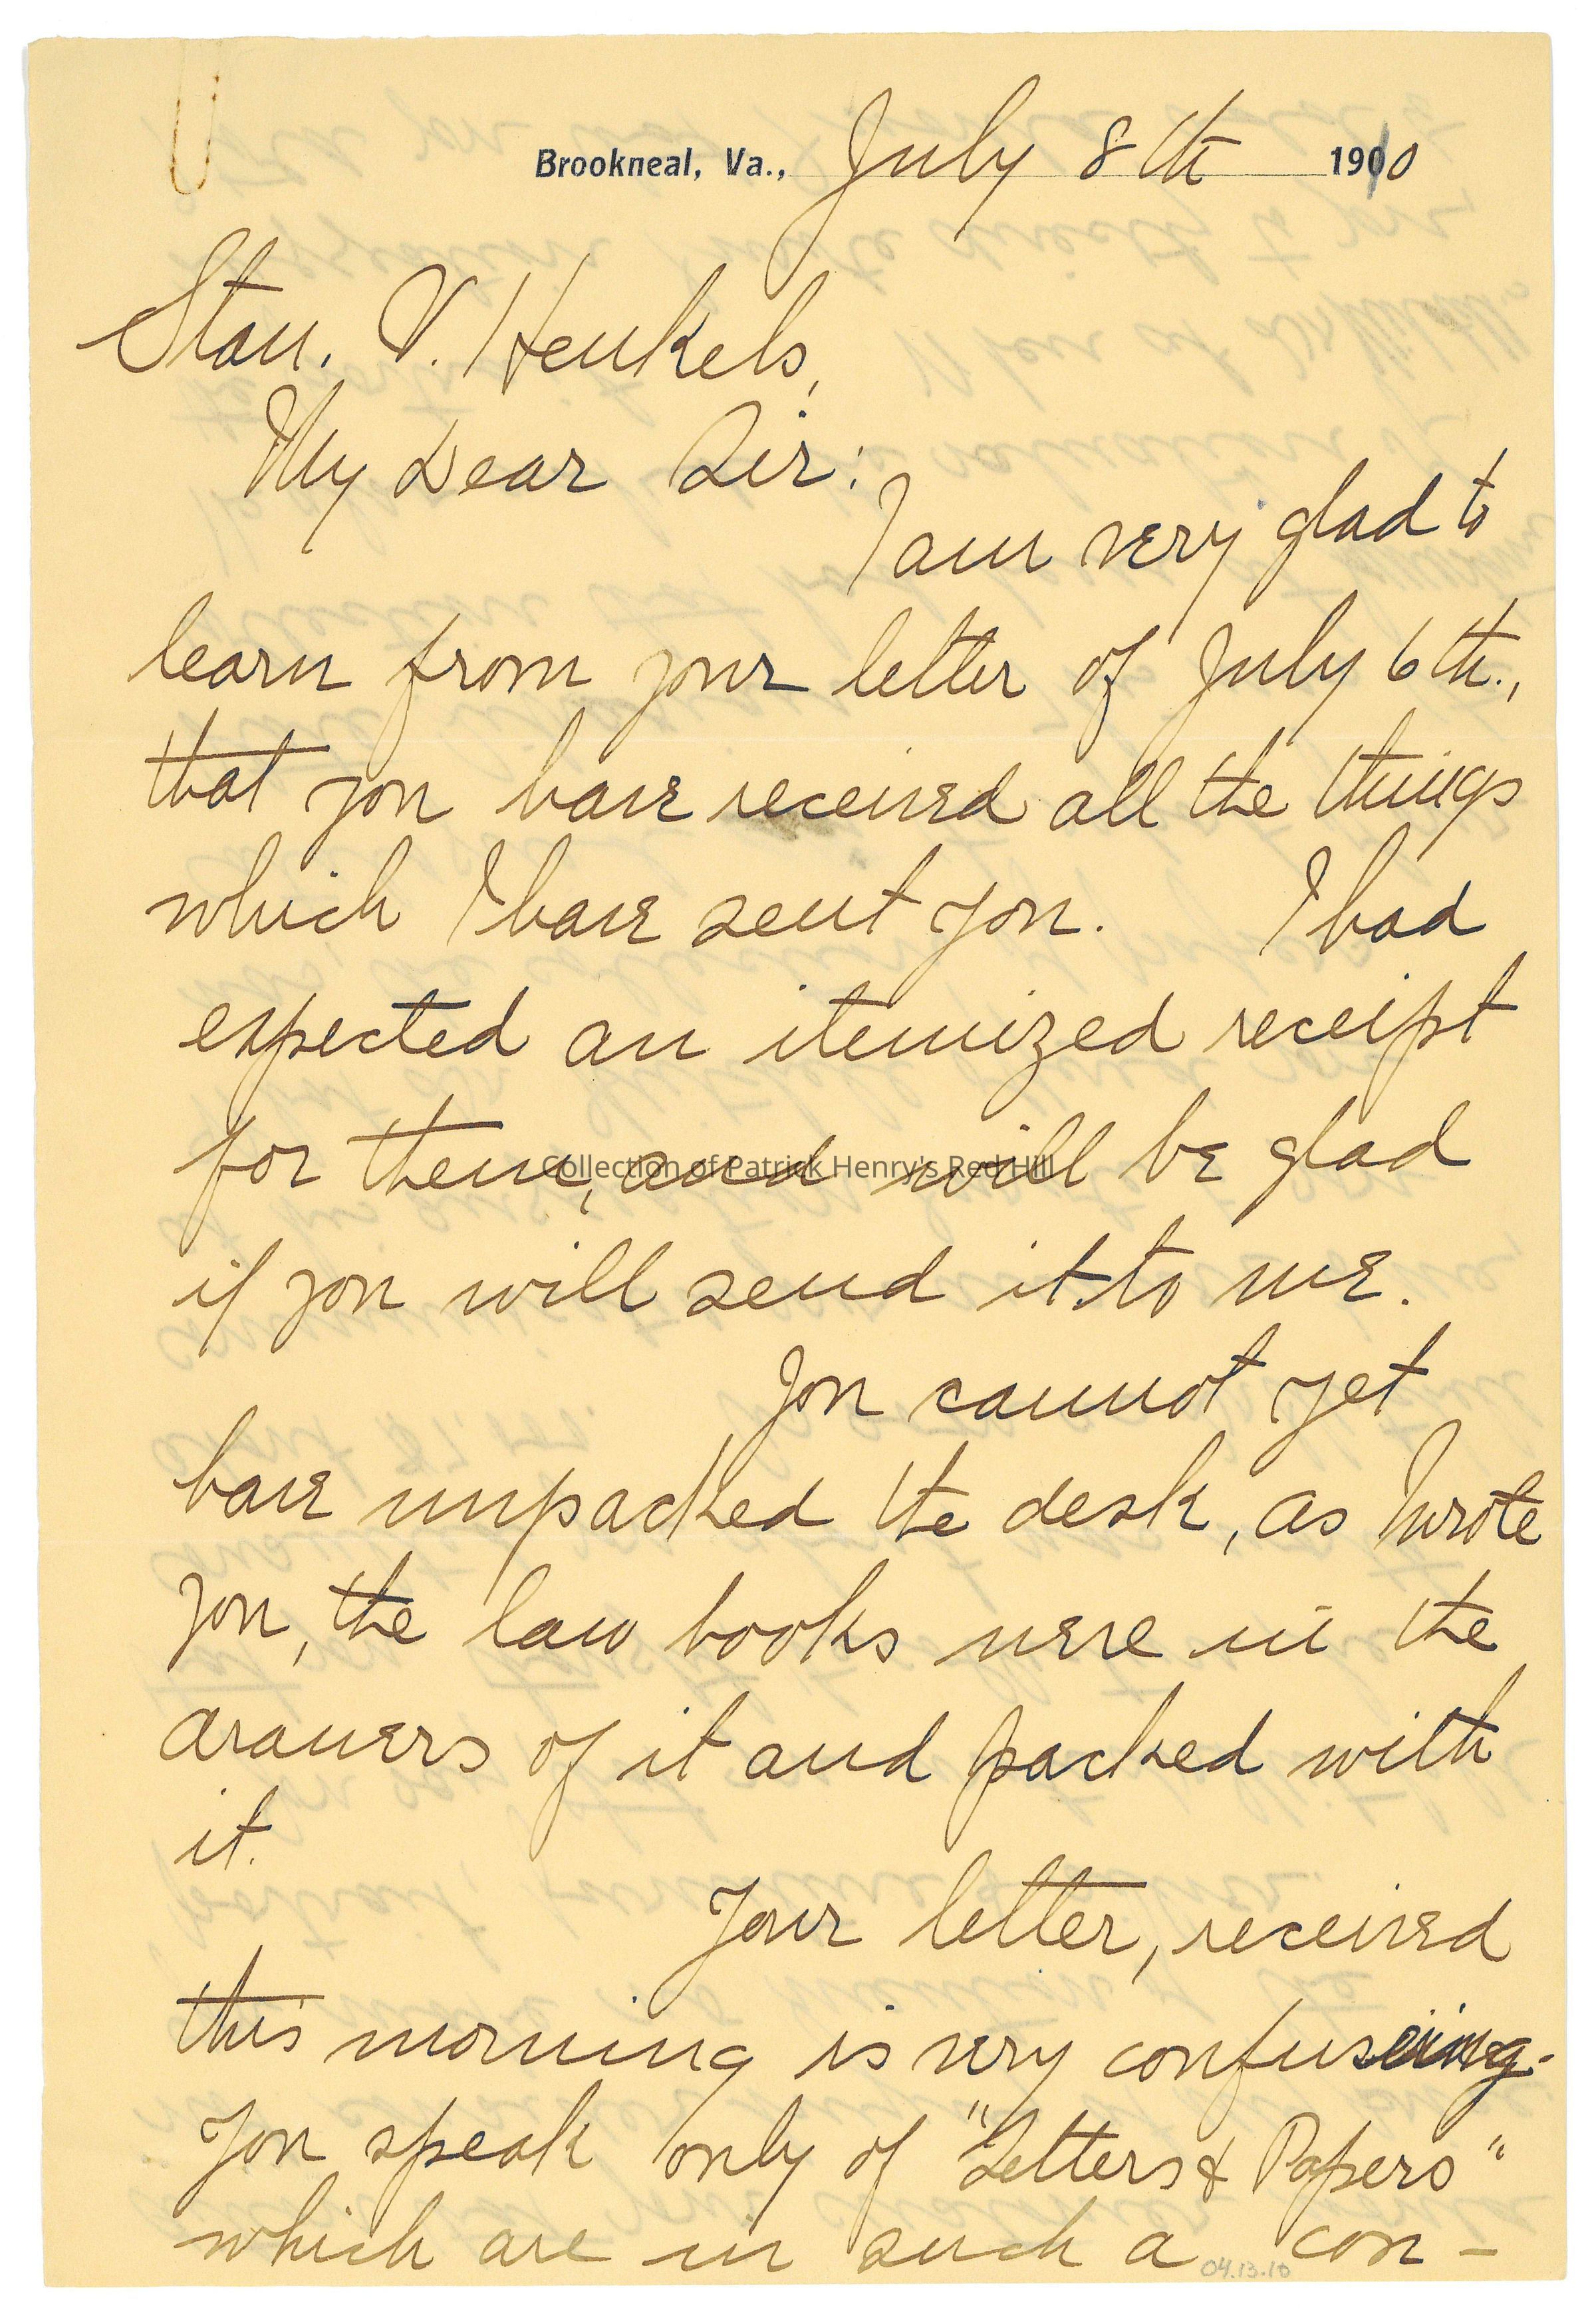 Brookneal, Va., July 8th 1910
Stan. V. Henkels,
My Dear Sir:
I am very glad to
learn from your letter of July 6th.,
that you have received all the things
which I have sent you. I had
expected an itemized receipt
for them, and will be glad
Collection of Patrick Henry's Red Hill
if you will send it to me.
You cannot yet
have unpacked the desk, as I wrote
you, the law books were in the
drawers of it and packed with
it.
Your letter, received
this morning is very confuseing.
You speak only of "Letters & Papers"
which are in such a con-
04.13.10